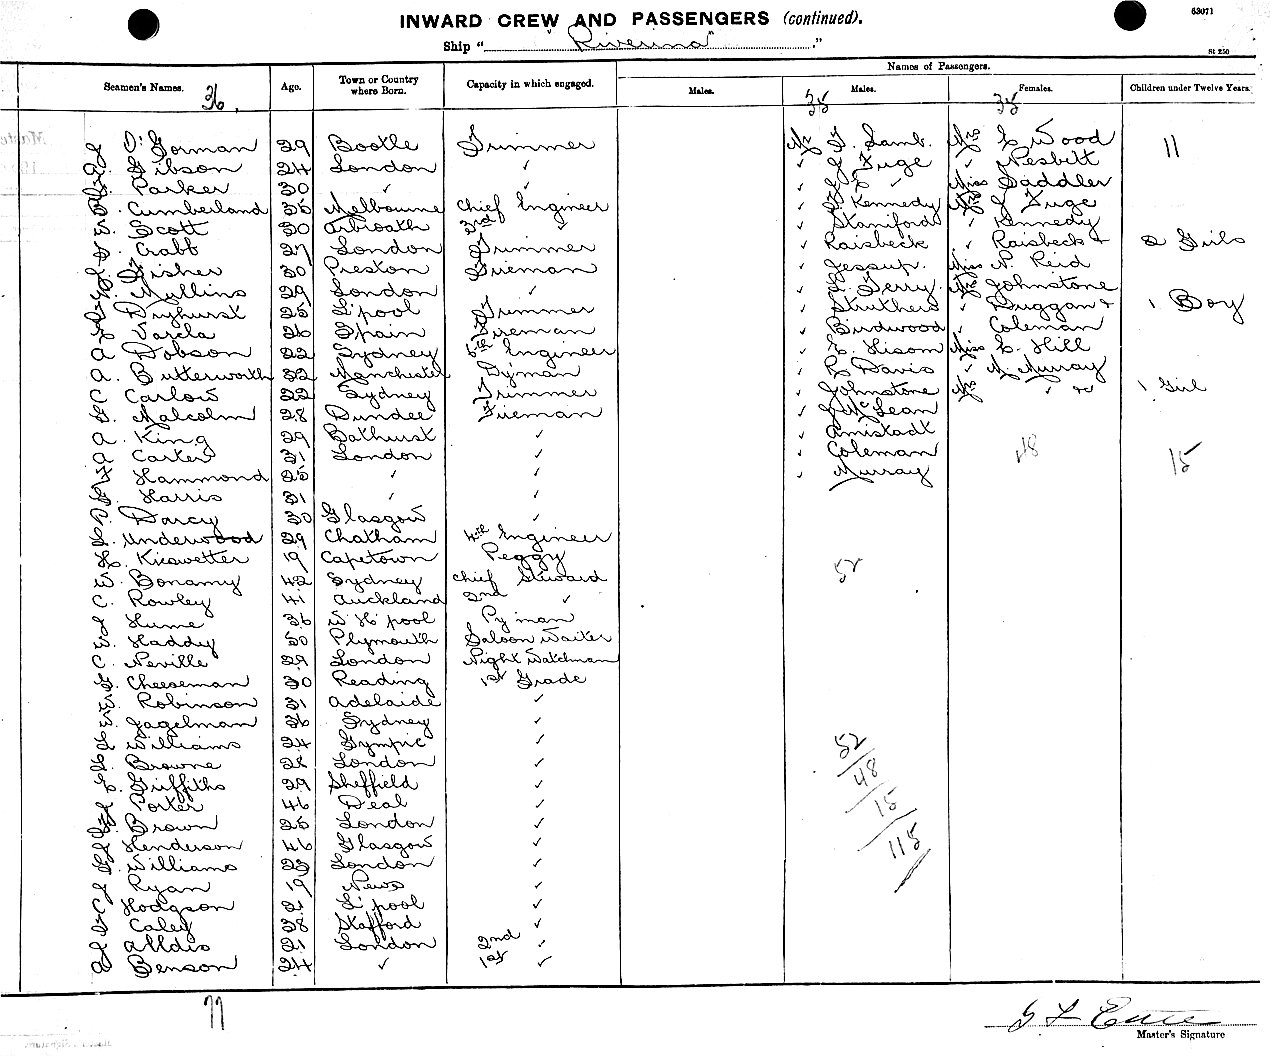 63071
INWARD CREW AND PASSENGERS (continued).
Ship "Riverina"
St 250
Seamen's Names. Age. Town or Country where Born. Capacity in which engaged. Names of Passengers.
Males. Males. Females. Children under Twelve Years.
36 35 38
O'Gorman 29 Bootle Trimmer Mr Lamb. Mrs Wood 11
Gibson 24 London ✓ ✓ J Fuge ✓ Nesbitt
Parker 30 ✓ ✓ ✓ Miss Saddler
Cumberland 35 Melbourne Chief Engineer ✓ Kennedy Mrs J Fuge
Scott 30 Arbroath 3rd ✓ Staniford ✓ Kennedy
Crabb 27 London Trimmer ✓ Raisbeck ✓ Raisbeck + 2 Girls
Fisher 30 Preston Fireman ✓ Jessup. Miss N. Reid
Mullins 29 London ✓ ✓ Terry. Mrs Johnstone
Dryhurst 25 L'pool Trimmer ✓ Struthers ✓ Duggan + 1 Boy
Varela 26 Spain Fireman ✓ Birdwood ✓ Coleman
A Dobson 22 Sydney 5th Engineer ✓ Lisom Miss L. Hill
A. Butterworth 32 Manchester P'yman ✓ R Davis ✓ M Murray
C Carlos 22 Sydney Trimmer ✓ Johnstone Mrs ✓ + 1 Girl
Malcolm 28 Dundee Fireman ✓ J McLean
A King 29 Bathurst ✓ ✓ Amistadt
A Carter 31 London ✓ ✓ Coleman 48 15
Hammond 25 ✓ ✓ ✓ Murray
Harris 31 ✓ ✓
Darcy 30 Glasgow ✓
Underwood 29 Chatham 4th Engineer
Kiswetter 19 Capetown Peggy
W. Bonamy 42 Sydney Chief Steward 52
C. Rowley 41 Auckland 2nd ✓
J Hume 36 W H'pool P'yman
W. Haddy 50 Plymouth Saloon Waiter
C Neville 29 London Night Watchman
G. Cheeseman 30 Reading 1st Grade
W. Robinson 31 Adelaide ✓
W. Jagelman 36 Sydney ✓
Williams 24 Gympie ✓ 52
Browne 28 London ✓ 48
Griffiths 29 Sheffield ✓
J Porter 46 Deal ✓ 15
Brown 25 London ✓
J Henderson 46 Glasgow ✓ 115
Williams 23 London ✓
J Ryan 19 News ✓
C Hodgson 21 L'pool ✓
Caley 38 Stafford ✓
Alldis 21 London 2nd ✓
Benson 24 ✓ 1st ✓
77
Master's Signature